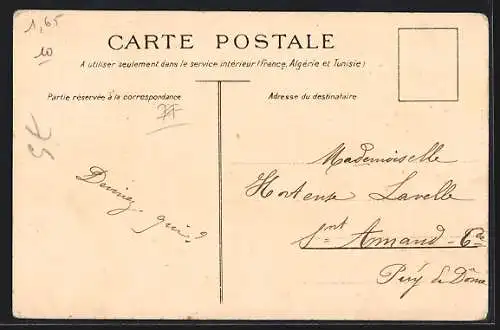 1,65
10
CARTE POSTALE
A utiliser seulement dans le service intérieur (France, Algérie et Tunisie)
Partie réservée à la correspondance
Adresse du destinataire
Devinez
qui?
Mademoiselle
Hortense Lavelle
St Amand-
Puy de Dôme